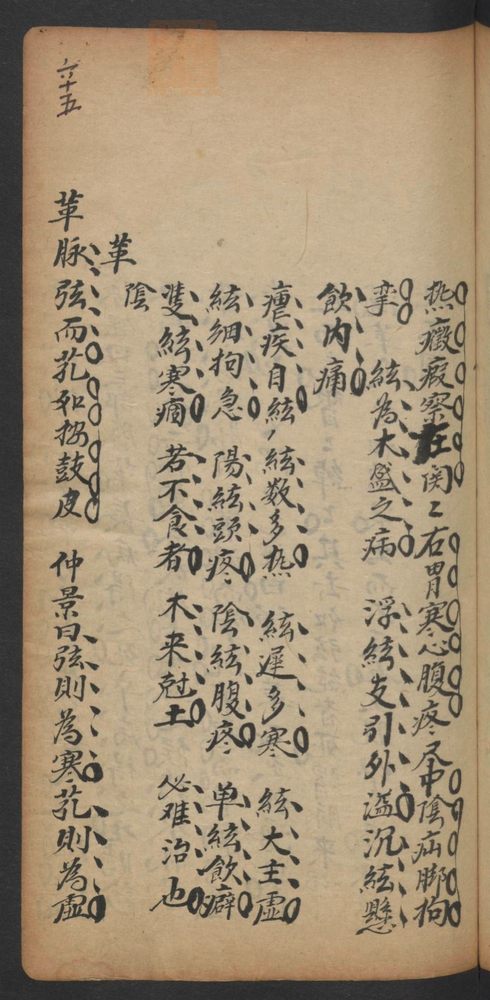 热癥瘕察在関〻右胃寒心腹疼尺中陰疝脚拘
挛　絃為木盛之病　浮絃支引外溢沉絃懸
飲内痛
瘧疾自絃，絃数多热　絃遲多寒　絃大主虚
絃细拘急　陽絃頭疼　陰絃腹疼　单絃飲癖
隻絃寒痼　若不食者　木来尅土　必难治也
陰
革
革脉弦而芤如按鼓皮　仲景曰弦則為寒芤則為虚
六十五